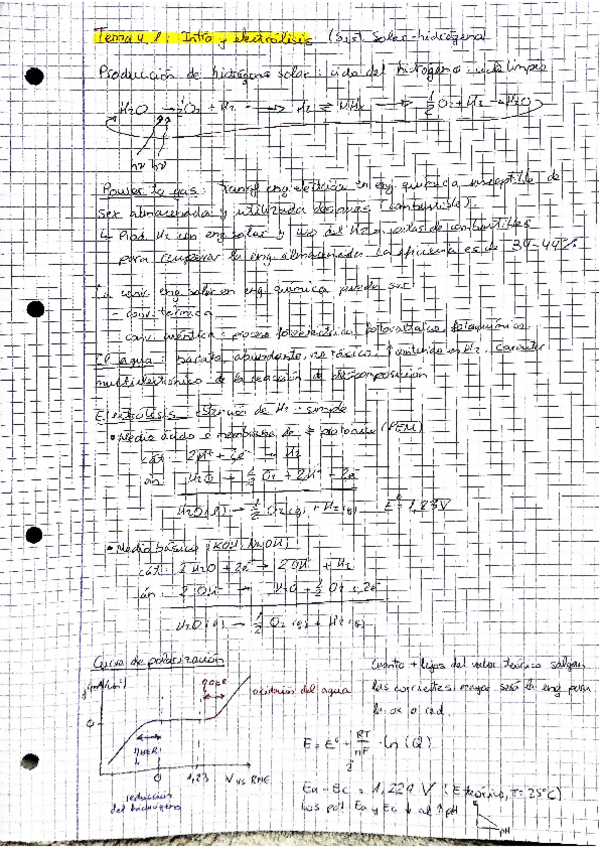 Tema 4.1: Intro y electrólisis (Sist. Solar-hidrógeno)
Producción de hidrógeno solar: ciclo del hidrógeno
H2O → ½O2 + H2 → H2 ⇌ MHx → ½O2 + H2 → H2O
hν hν
Power to gas: Transf eng eléctrica en eng química susceptible de
ser almacenada y utilizada después (combustible).
↳ Prod. H2 con eng solar y uso del H2 en pilas de combustibles
para recuperar la eng almacenada. La eficiencia es de 39-44%
La conv. eng solar en eng química puede ser:
- conv. térmica
- conv. cuántica: proceso fotoeléctrico, fotovoltaico, fotoquímico
El agua: barata, abundante, no tóxica, ↑ contenido en H2, carácter
multielectrónico de la reacción de descomposición
Electrólisis
simple
• Medio ácido o membrana de protónica (PEM)
cát: 2H+ + 2e- → H2
án: H2O → ½ O2 + 2H+ + 2e-
H2O(l) → ½ O2(g) + H2(g) E° = 1,23V
• Medio básico (KOH, NaOH)
cát: 2 H2O + 2e- → 2OH- + H2
án: 2 OH- → H2O + ½ O2 + 2e-
H2O(l) → ½ O2(g) + H2(g)
Curva de polarización
oxidación del agua
ηHER
0
0 1,23 V vs RHE
reducción
del hidrógeno
Cuanto + lejos del valor teórico salgan
las corrientes, mayor será la eng para
la ox o red.
E = E° - RT/nF · Ln(Q)
2
Ea - Ec = 1,229 V (E teórico, T = 25°C)
Los pot. Ea y Ec ↓ al ↑ pH
pH